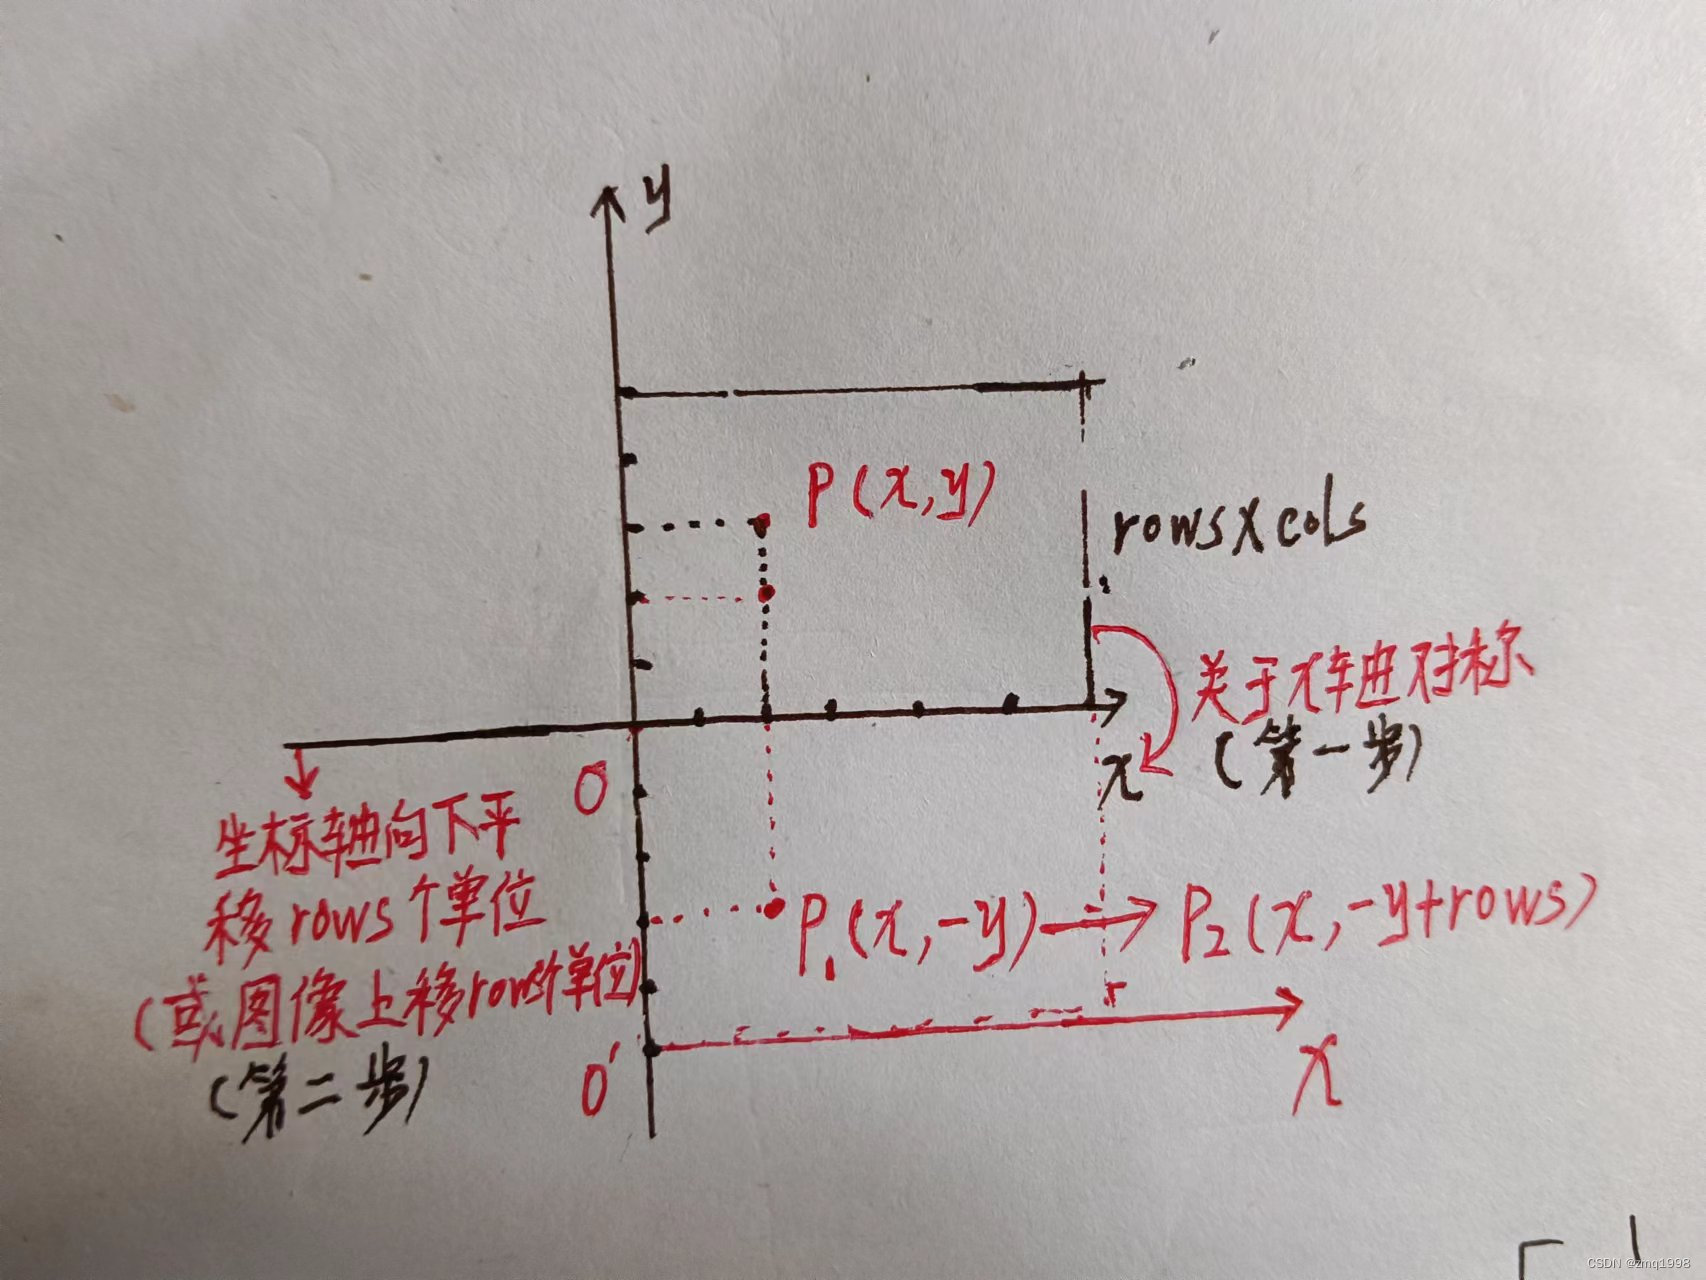 y
P(x,y)
rows×cols
关于x轴进对称
(第一步)
x
O
坐标轴向下平
移rows个单位
(或图像上移rows个单位)
(第二步)
P₁(x,-y)→P₂(x,-y+rows)
O'
x
CSDN @zmq1998